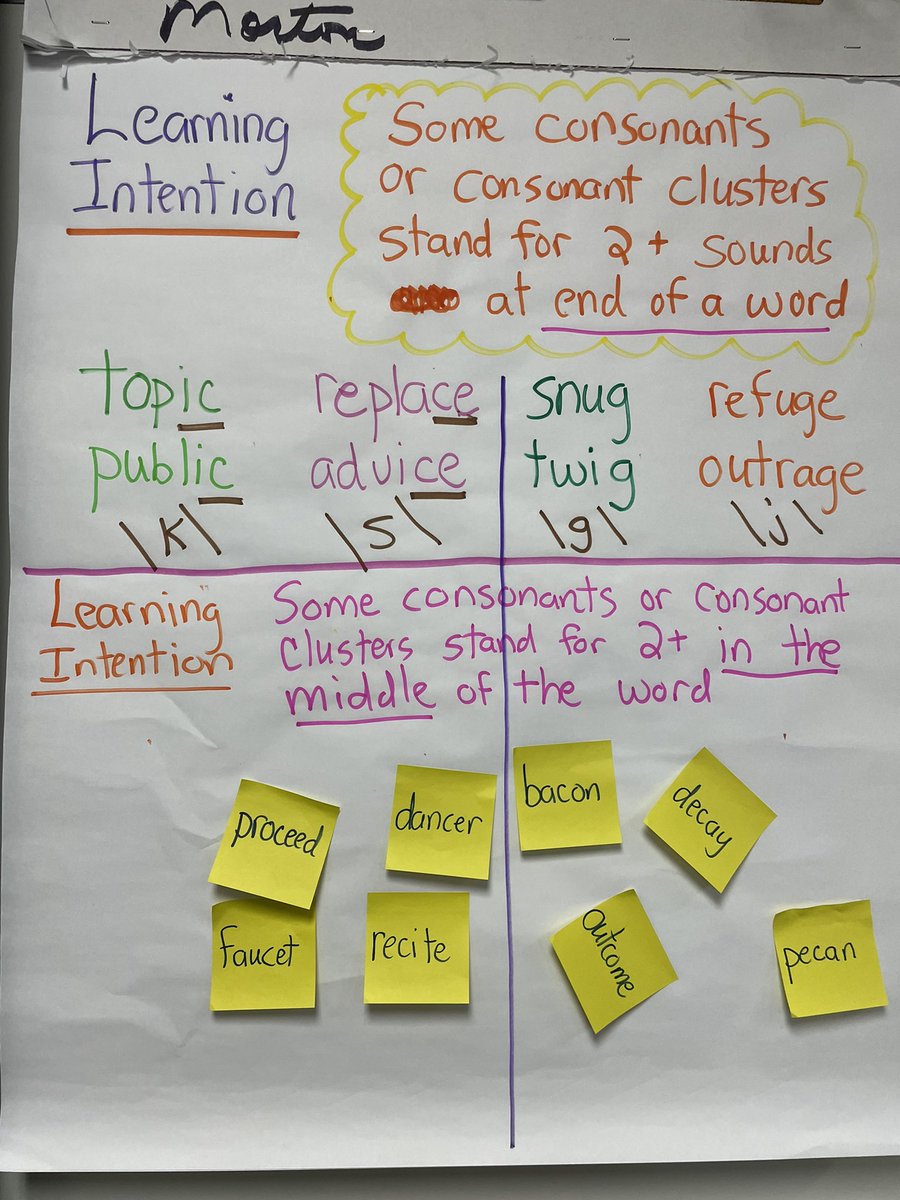 Morton
Learning
Intention
Some consonants
or consonant clusters
stand for 2+ sounds
at end of a word
topic replace snug refuge
public advice twig outrage
\k\ \s\ \g\ \j\
Learning
Intention
Some consonants or consonant
clusters stand for 2+ in the
middle of the word
proceed
dancer
bacon
decay
faucet
recite
outcome
pecan